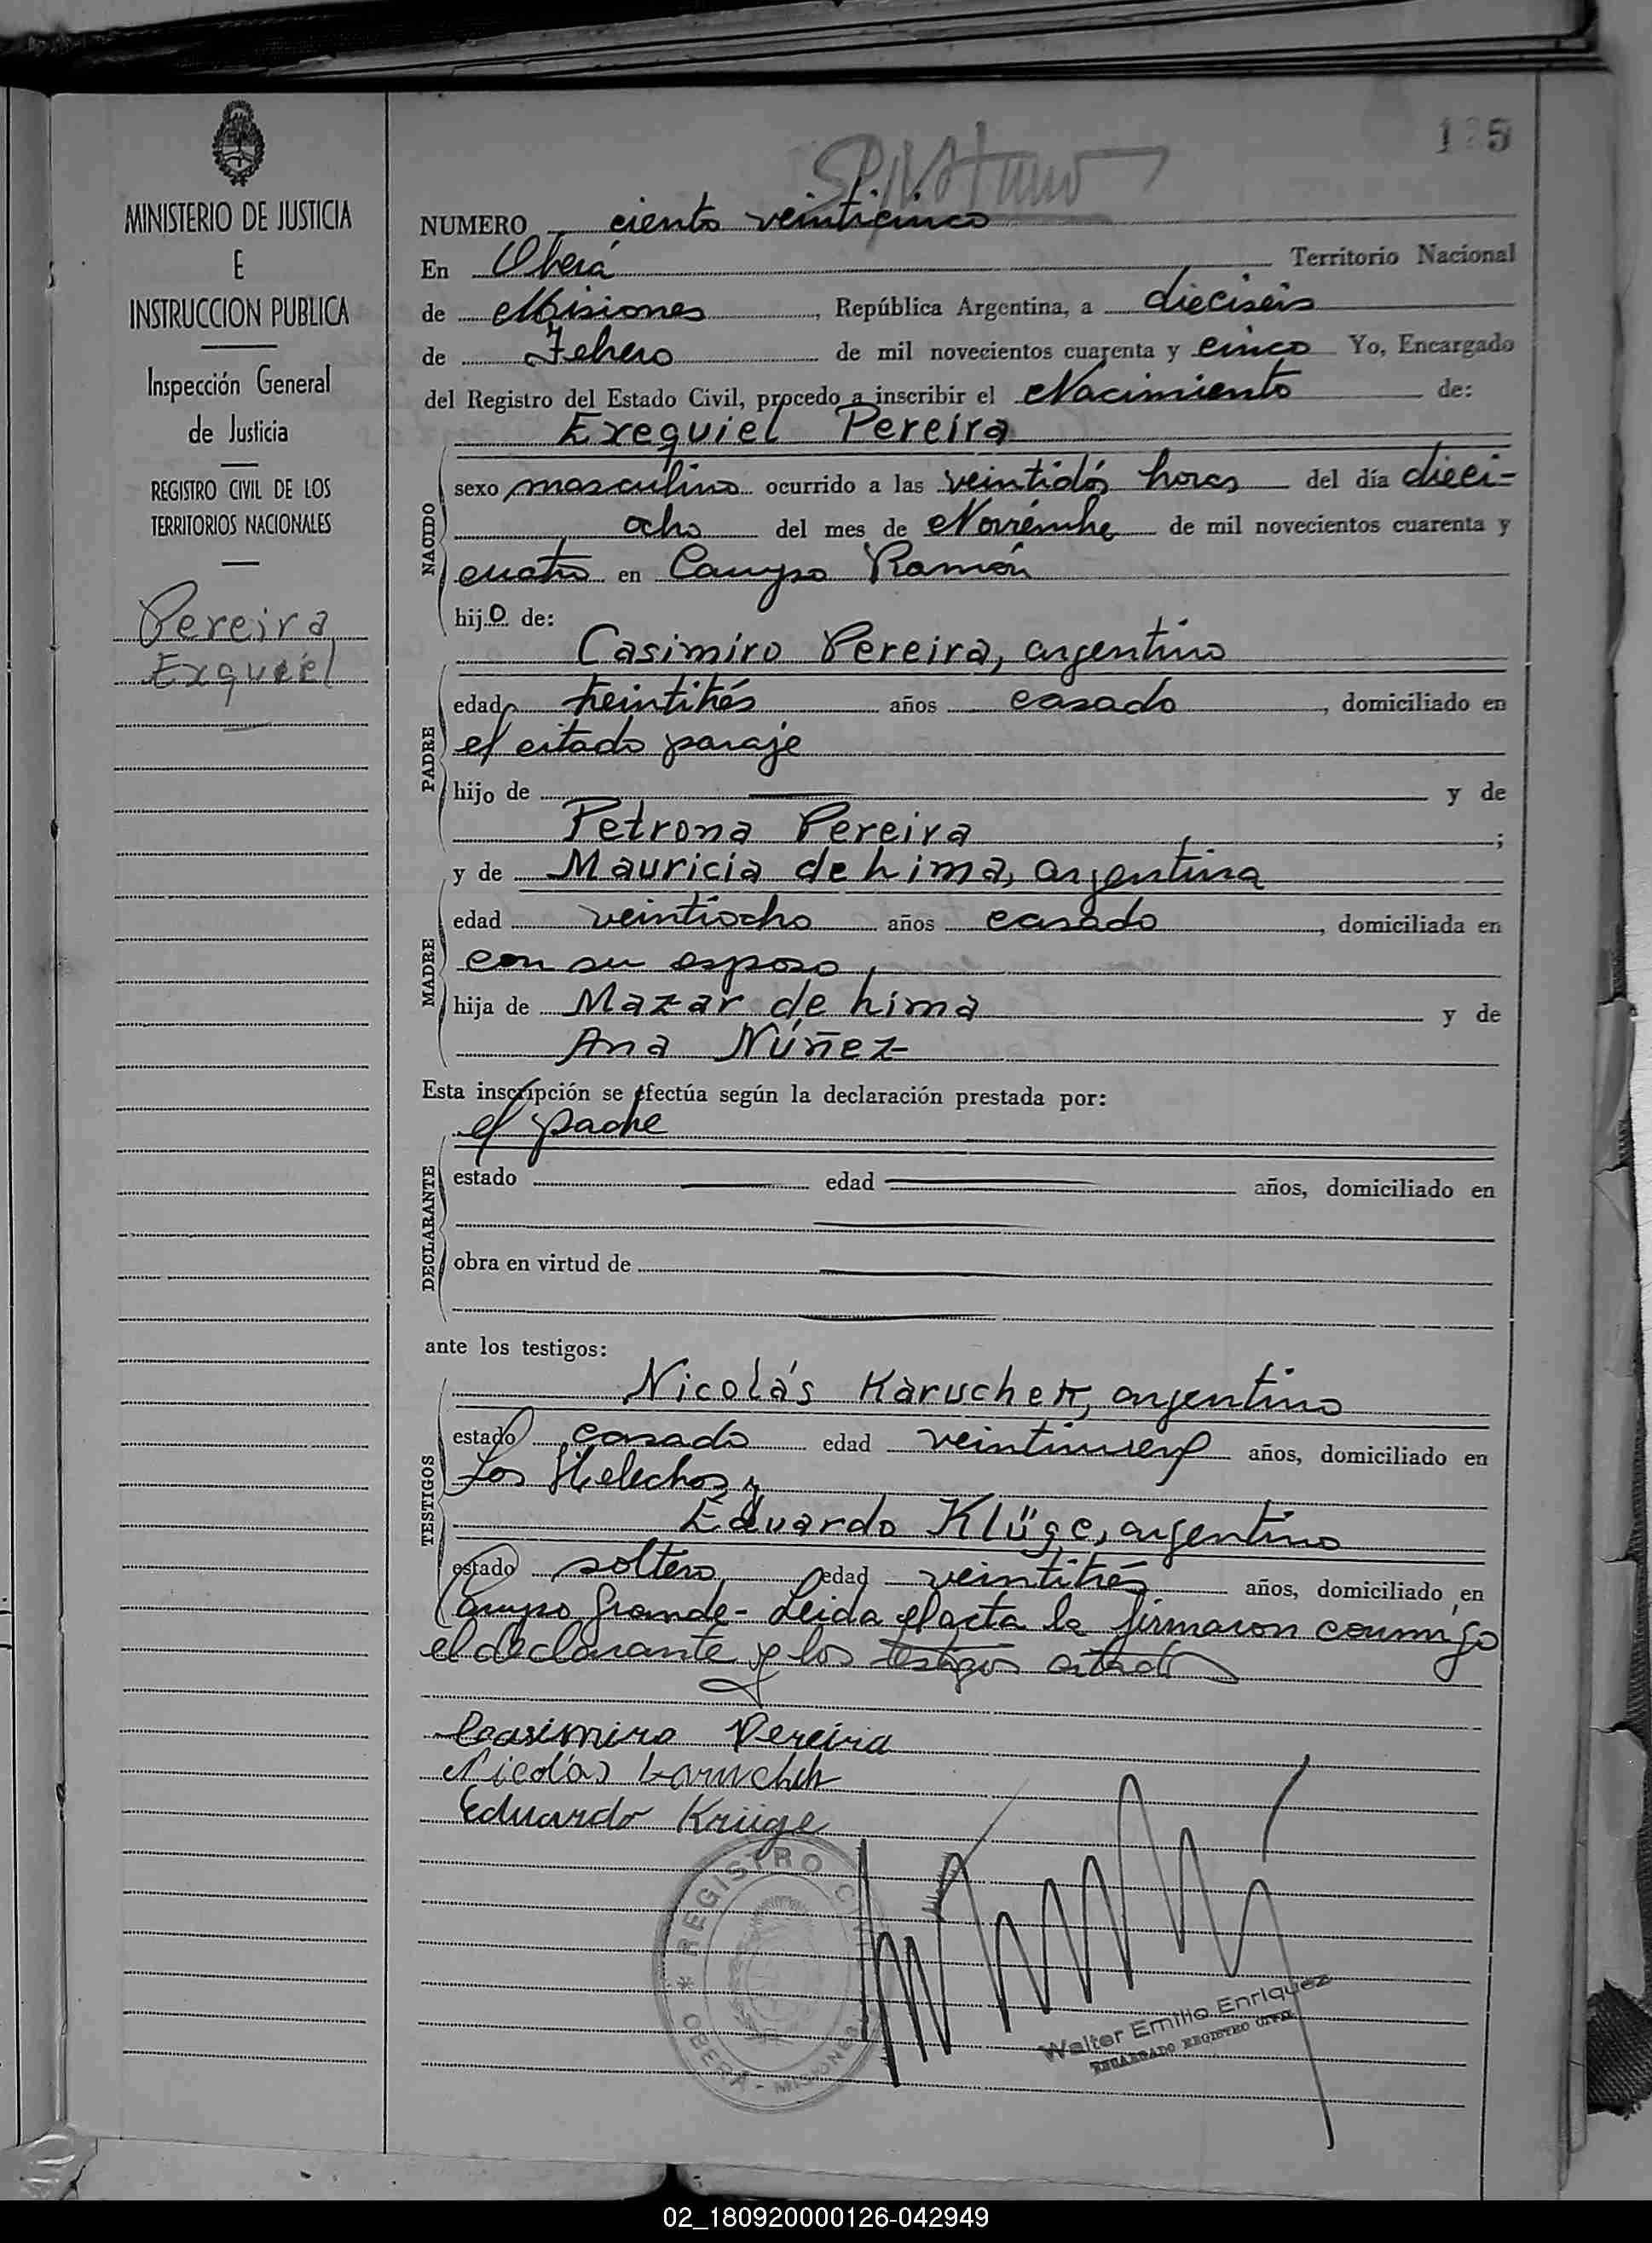 MINISTERIO DE JUSTICIA
E
INSTRUCCION PUBLICA
Inspección General
de Justicia
REGISTRO CIVIL DE LOS
TERRITORIOS NACIONALES
Pereira
Exequiel
NUMERO ciento veinticinco
En Oberá Territorio Nacional
de Misiones, República Argentina, a dieciseis
de Febrero de mil novecientos cuarenta y cinco Yo, Encargado
del Registro del Estado Civil, procedo a inscribir el Nacimiento de:
Exequiel Pereira
NACIDO
sexo masculino ocurrido a las veintidós horas del día dieci-
ocho del mes de Noviembre de mil novecientos cuarenta y
cuatro en Campo Ramón
hijo de:
Casimiro Pereira, argentino
PADRE
edad treintitrés años casado, domiciliado en
el citado paraje
hijo de y de
Petrona Pereira;
y de Mauricia de Lima, argentina
MADRE
edad veintiocho años casado, domiciliada en
con su esposo,
hija de Mazar de Lima y de
Ana Núñez
Esta inscripción se efectúa según la declaración prestada por:
el padre
DECLARANTE
estado edad años, domiciliado en
obra en virtud de
ante los testigos:
Nicolás Karuchek, argentino
TESTIGOS
estado casado edad veintinueve años, domiciliado en
Los Helechos y
Eduardo Klüge, argentino
estado soltero edad veintitrés años, domiciliado en
Campo Grande- Leida el acta la firmaron conmigo
el declarante y los testigos citados
Casimiro Pereira
Nicolás
Eduardo Krüge
REGISTRO CIVIL
OBERA - MISIONES
Walter Emilio Enriquez
ENCARGADO REGISTRO CIVIL
02_180920000126-042949